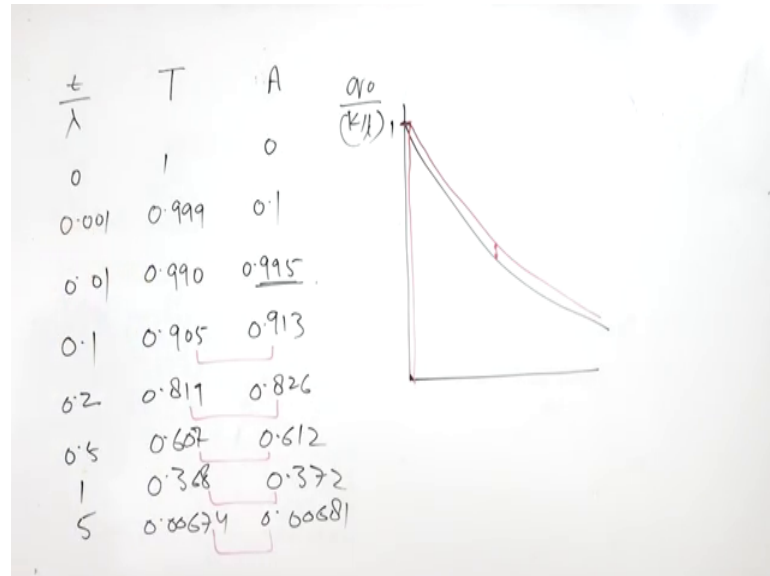 t/λ T A
0 1 0
0.001 0.999 0.1
0.01 0.990 0.995
0.1 0.905 0.913
0.2 0.819 0.826
0.5 0.607 0.612
1 0.368 0.372
5 0.00674 0.00681
1